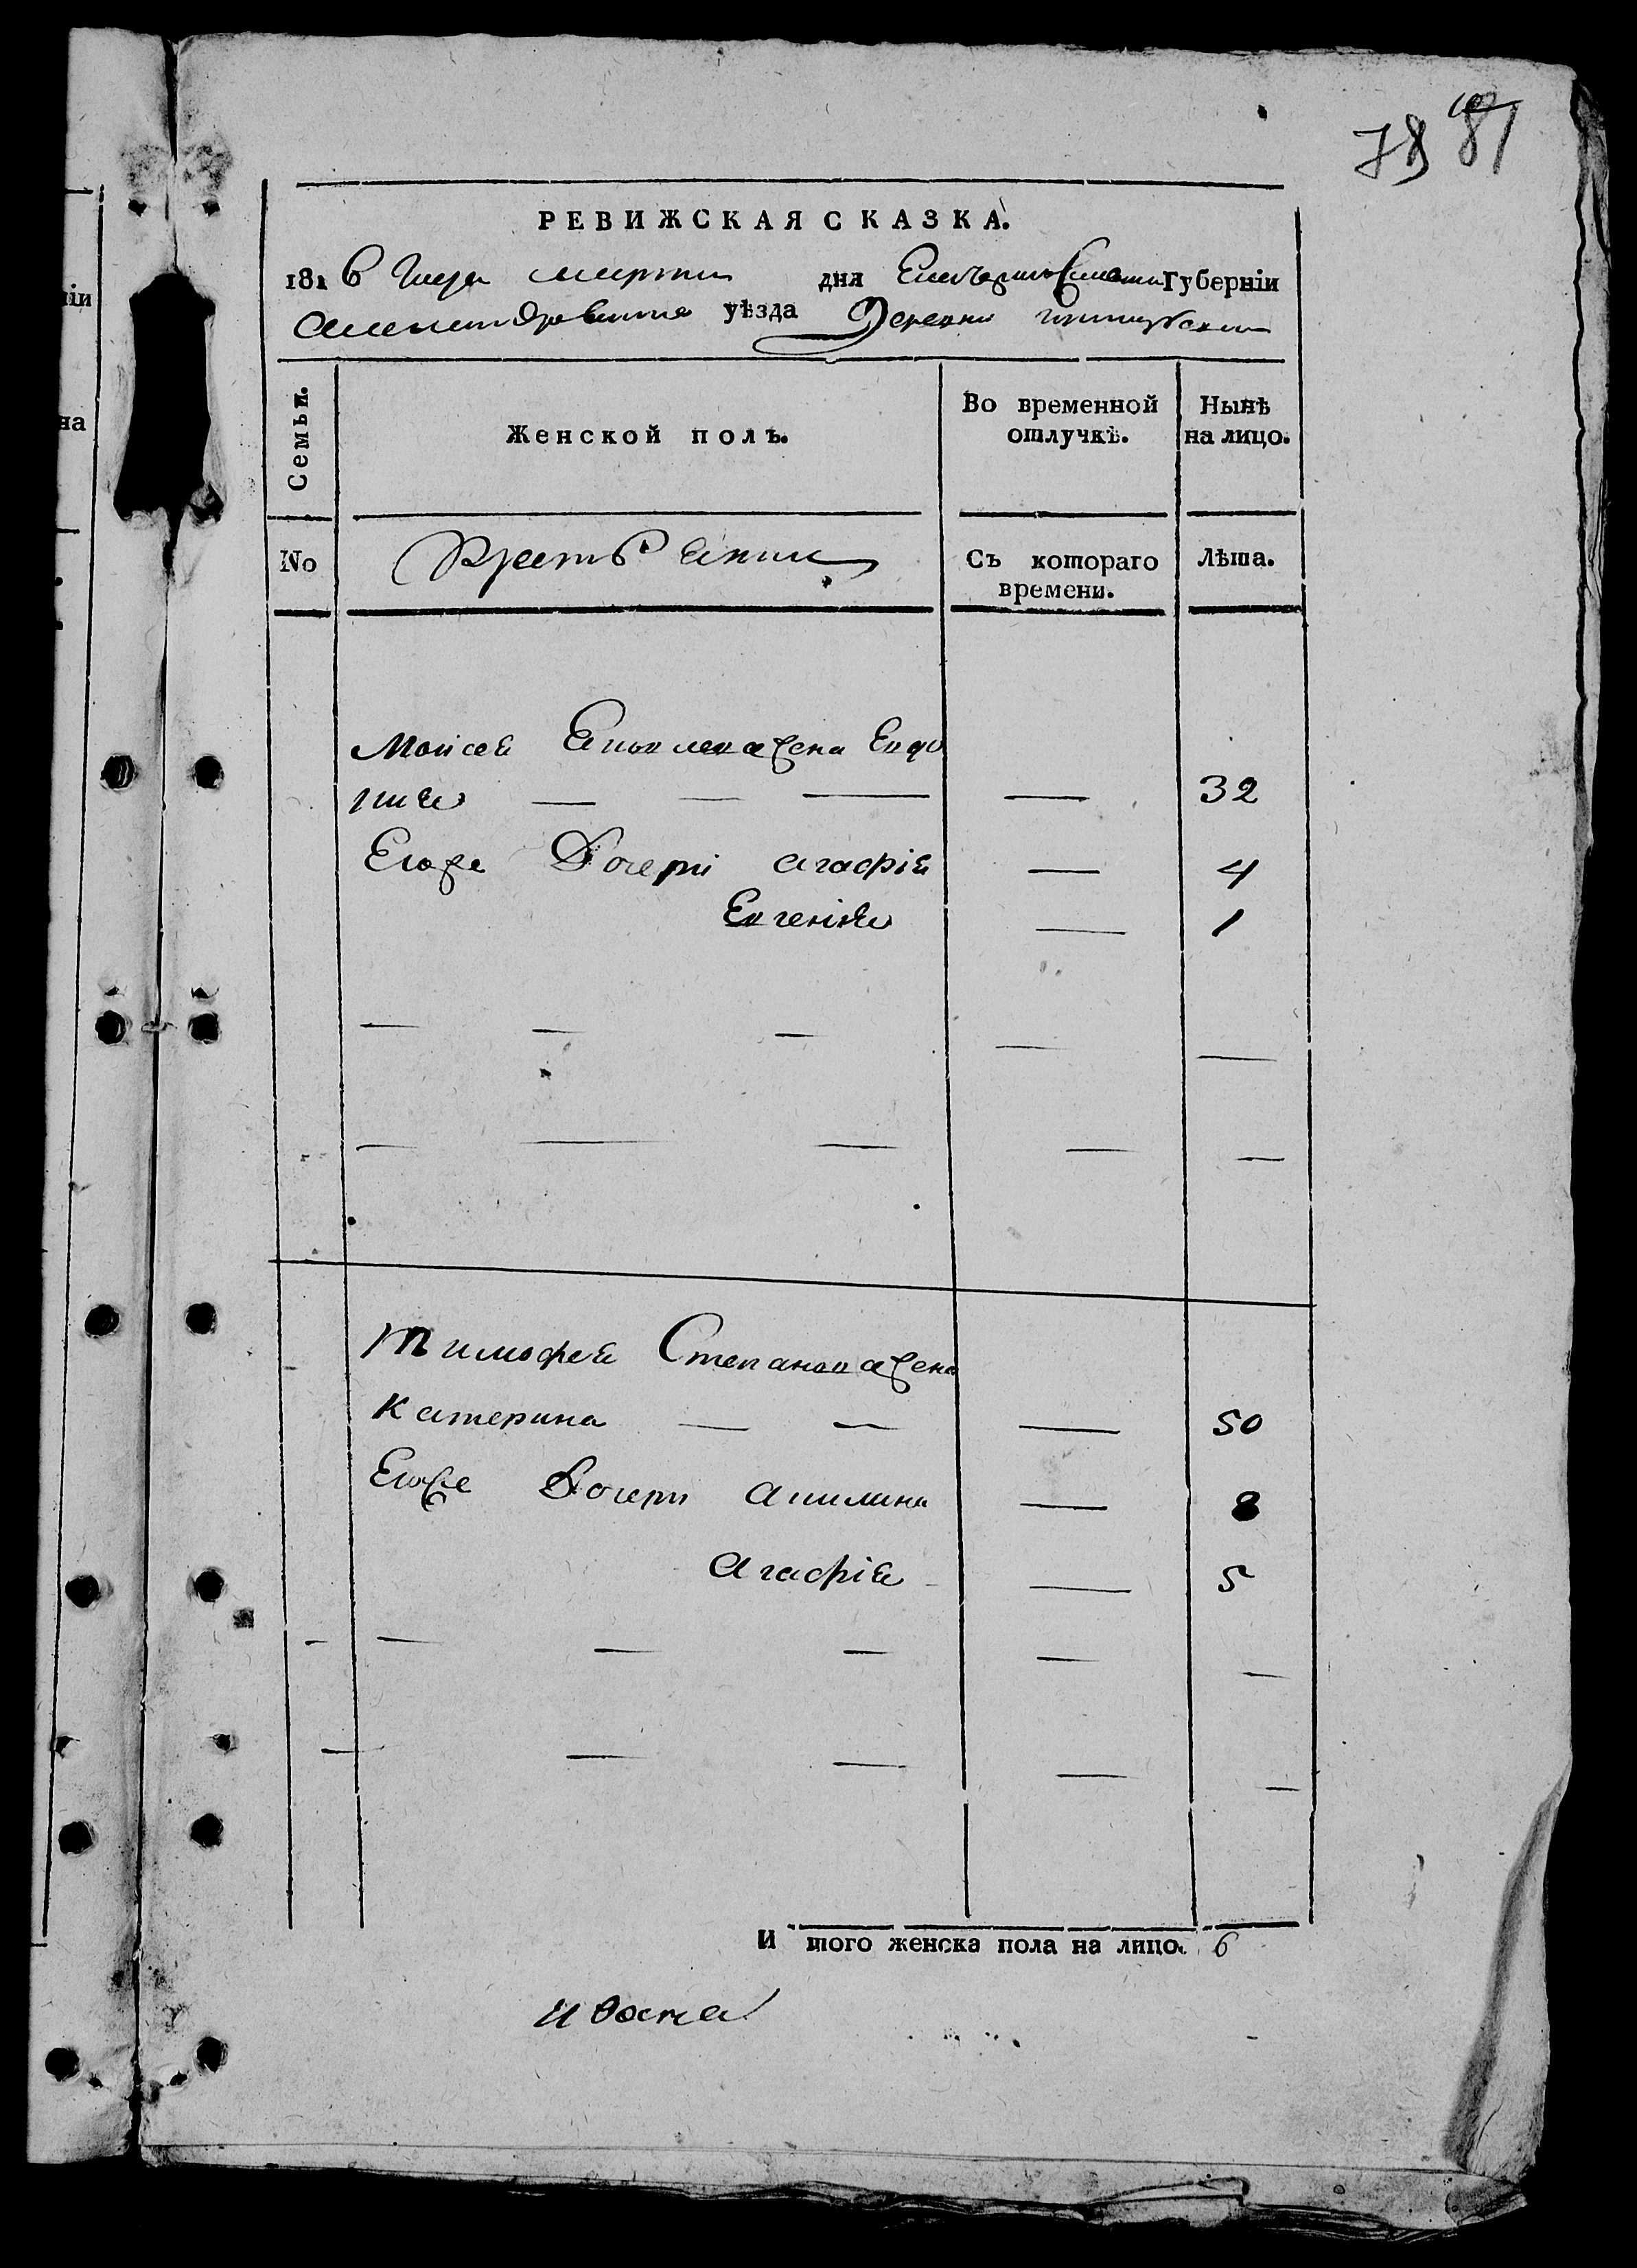 78 81
РЕВИЖСКАЯ СКАЗКА.
1816 Года марта дня Екатеринославской Губерніи
Александровского уѣзда Деревни
Семьи.
Женской полъ.
Во временной отлучкѣ.
Нынѣ на лицо.
No
Крестьяним
Съ котораго времени.
Лѣта.
Моисея жена Евдо
32
Егоже Дочери Агафія 4
Евгенія 1
Тимофея Степанова жена
Катерина 50
Егоже Дочери Акилина 8
Агафія 5
И того женска пола на лицо. 6